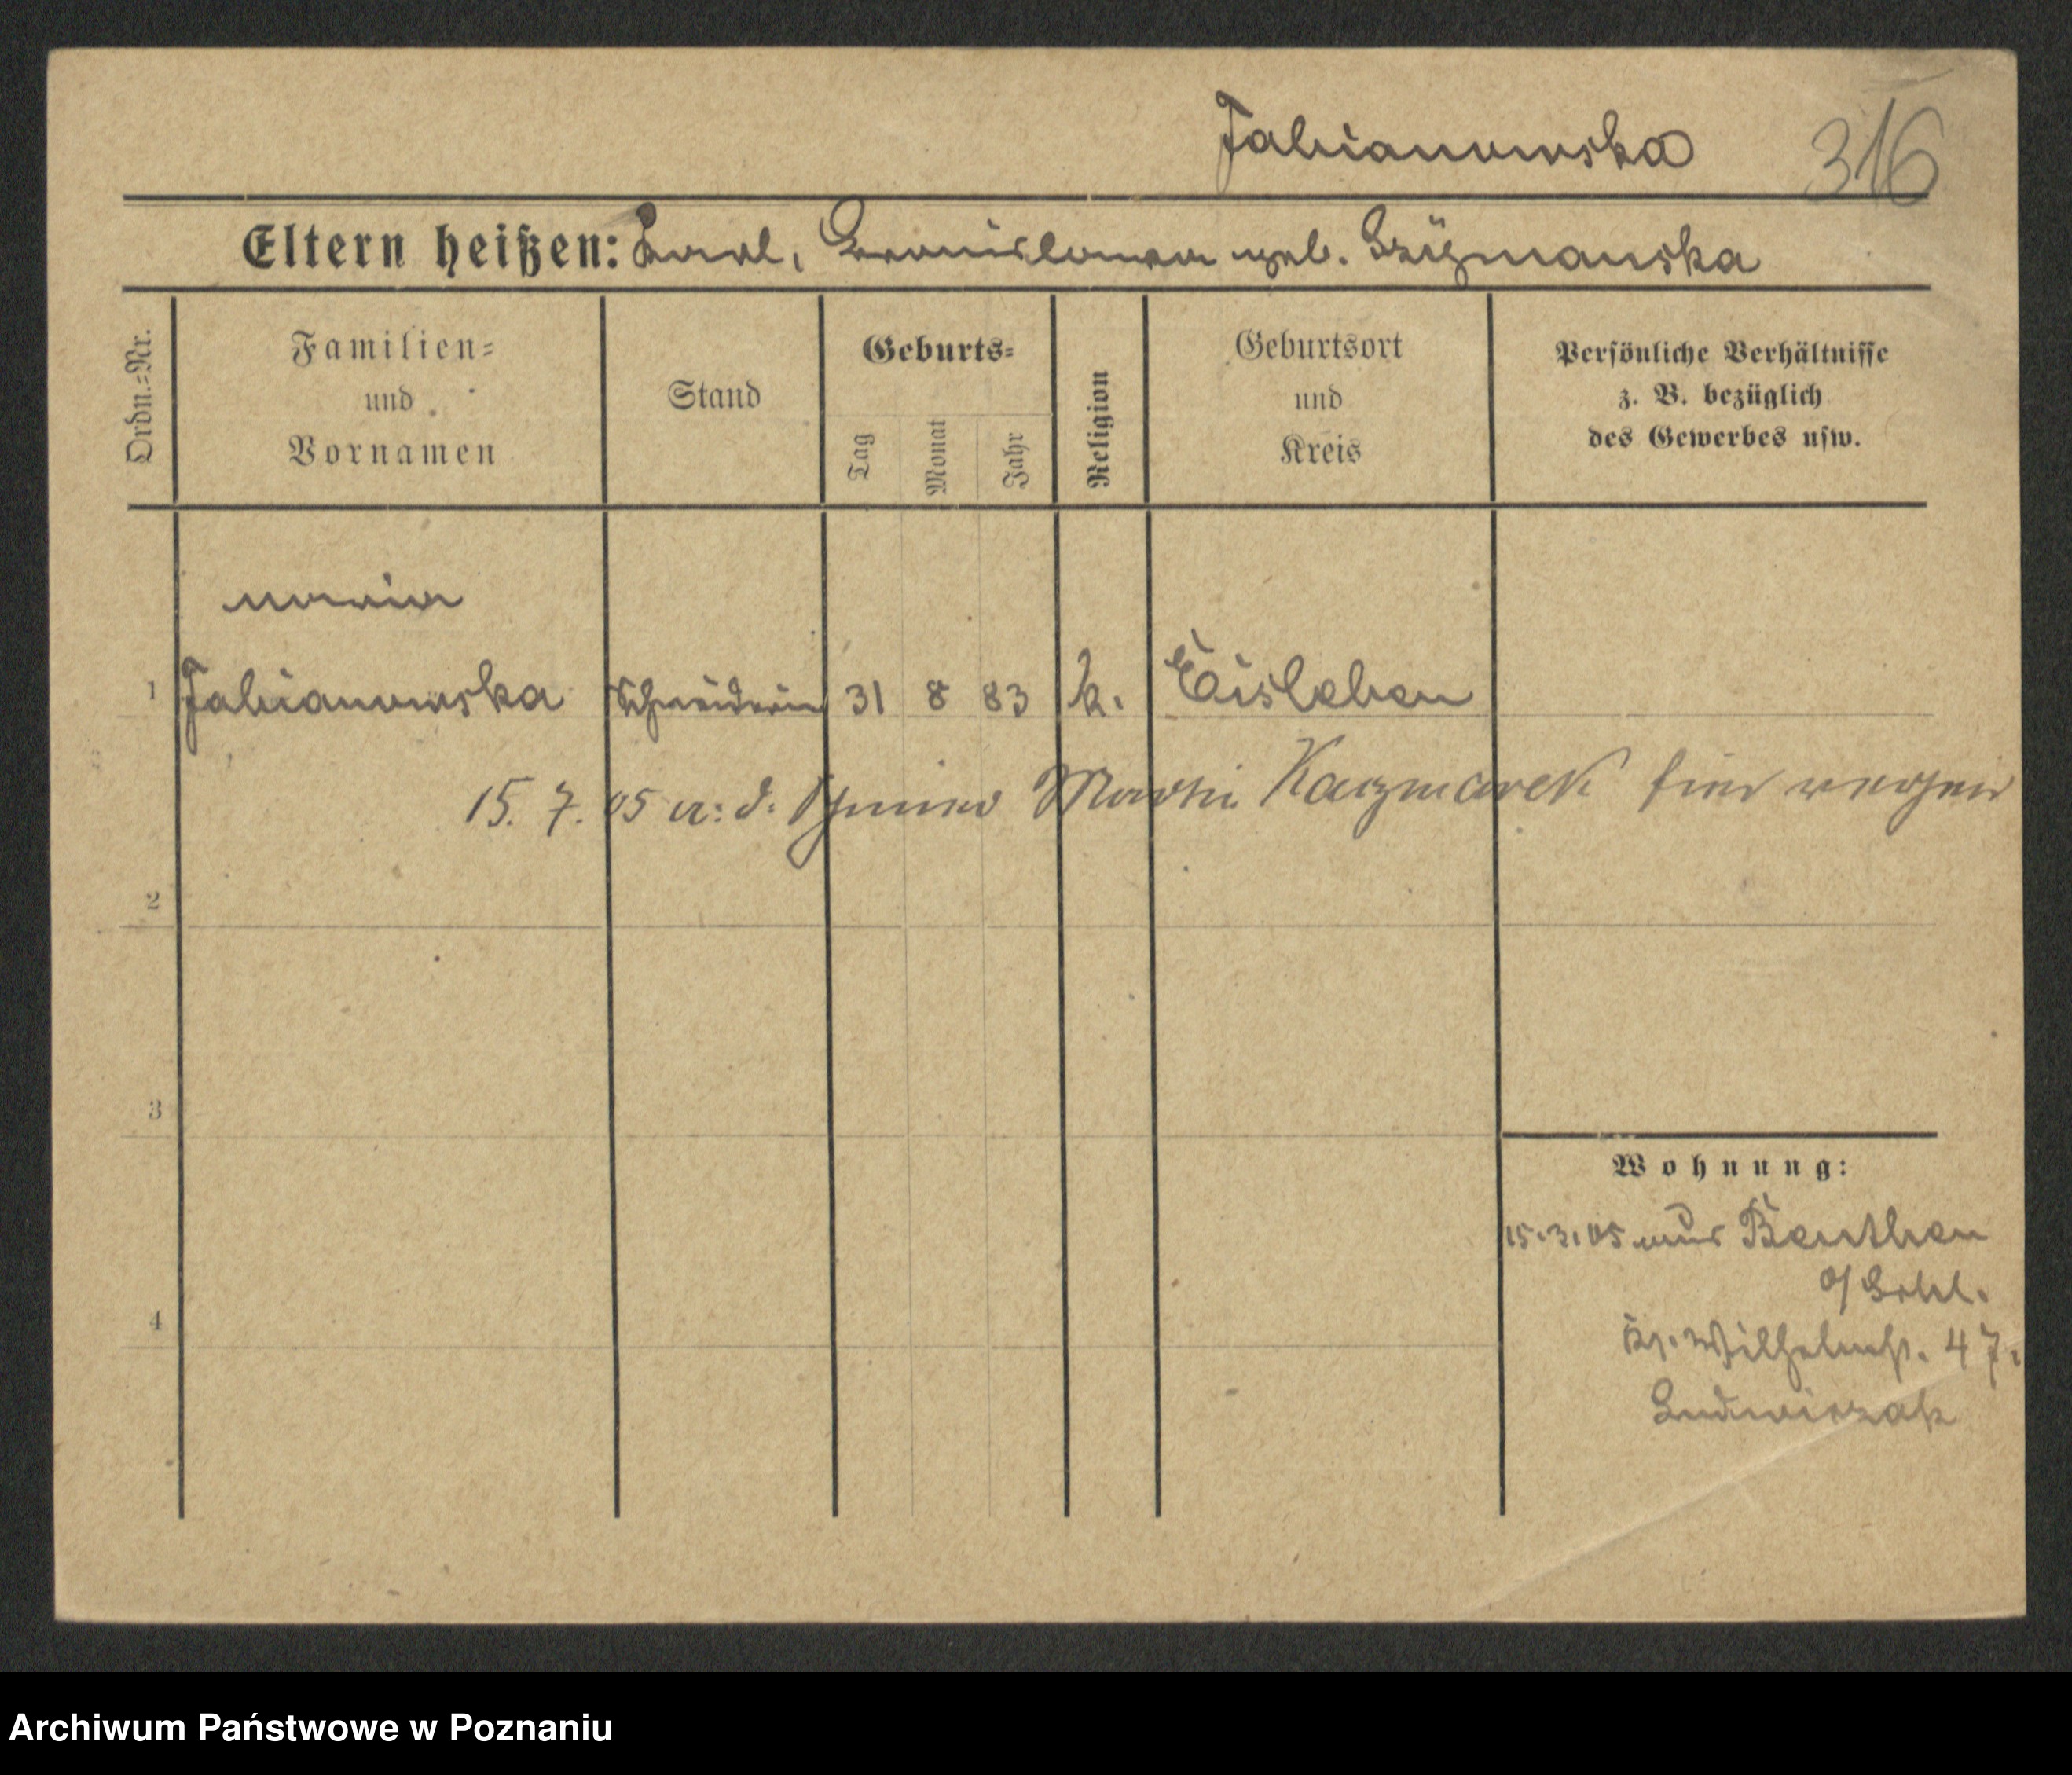 Fabianowska 316
Eltern heißen: Karl, Bronislawa geb. Szÿmanska
Ordn.=Nr.
Familien=
und
Vornamen
Stand
Geburts=
Tag
Monat
Jahr
Religion
Geburtsort
und
Kreis
Persönliche Verhältnisse
z. B. bezüglich
des Gewerbes usw.
Maria
1 Fabianowska Schneiderin 31 8 83 k. Eisleben
15. 7. 05 a: d. Martin Kaczmarek hier
2
3
4
Wohnung:
15.3.05 aus Beuthen
O/Schl.
Kr. Wilhelmst. 47.
Ludwiczak
Archiwum Państwowe w Poznaniu